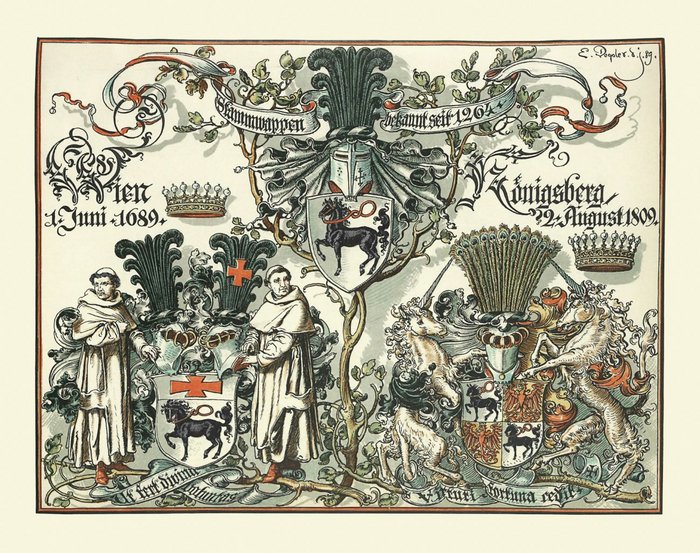 E. Doepler. d. j. 89.
Stammwappen bekannt seit 1264.
Wien
1. Juni 1689.
Königsberg,
22. August 1809.
fert divina
Virtuti fortuna cedit